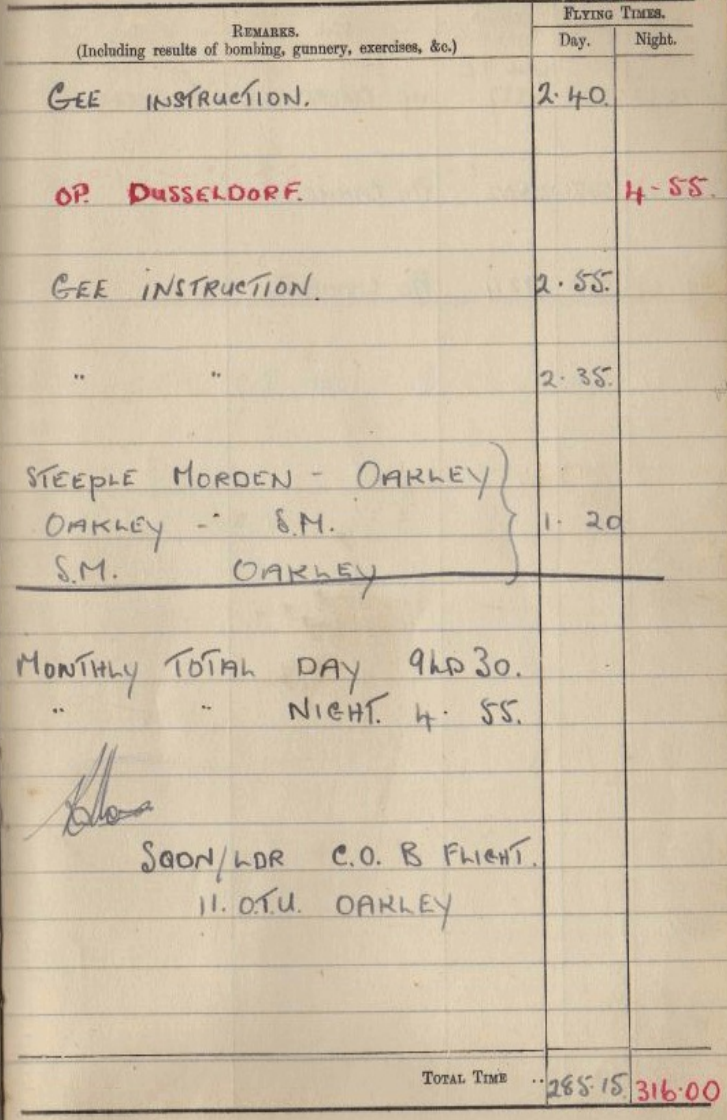 REMARKS.
(Including results of bombing, gunnery, exercises, &c.)
FLYING TIMES.
Day. Night.
GEE INSTRUCTION. 2.40.
OP. DUSSELDORF. 4-55.
GEE INSTRUCTION. 2.55.
" " 2.35.
STEEPLE MORDEN - OAKLEY
OAKLEY - S.M. 1. 20
S.M. OAKLEY
MONTHLY TOTAL DAY 30.
" " NIGHT. 4. 55.
SQDN/LDR C.O. B FLIGHT.
11. O.T.U. OAKLEY
TOTAL TIME .. 285.15 316.00